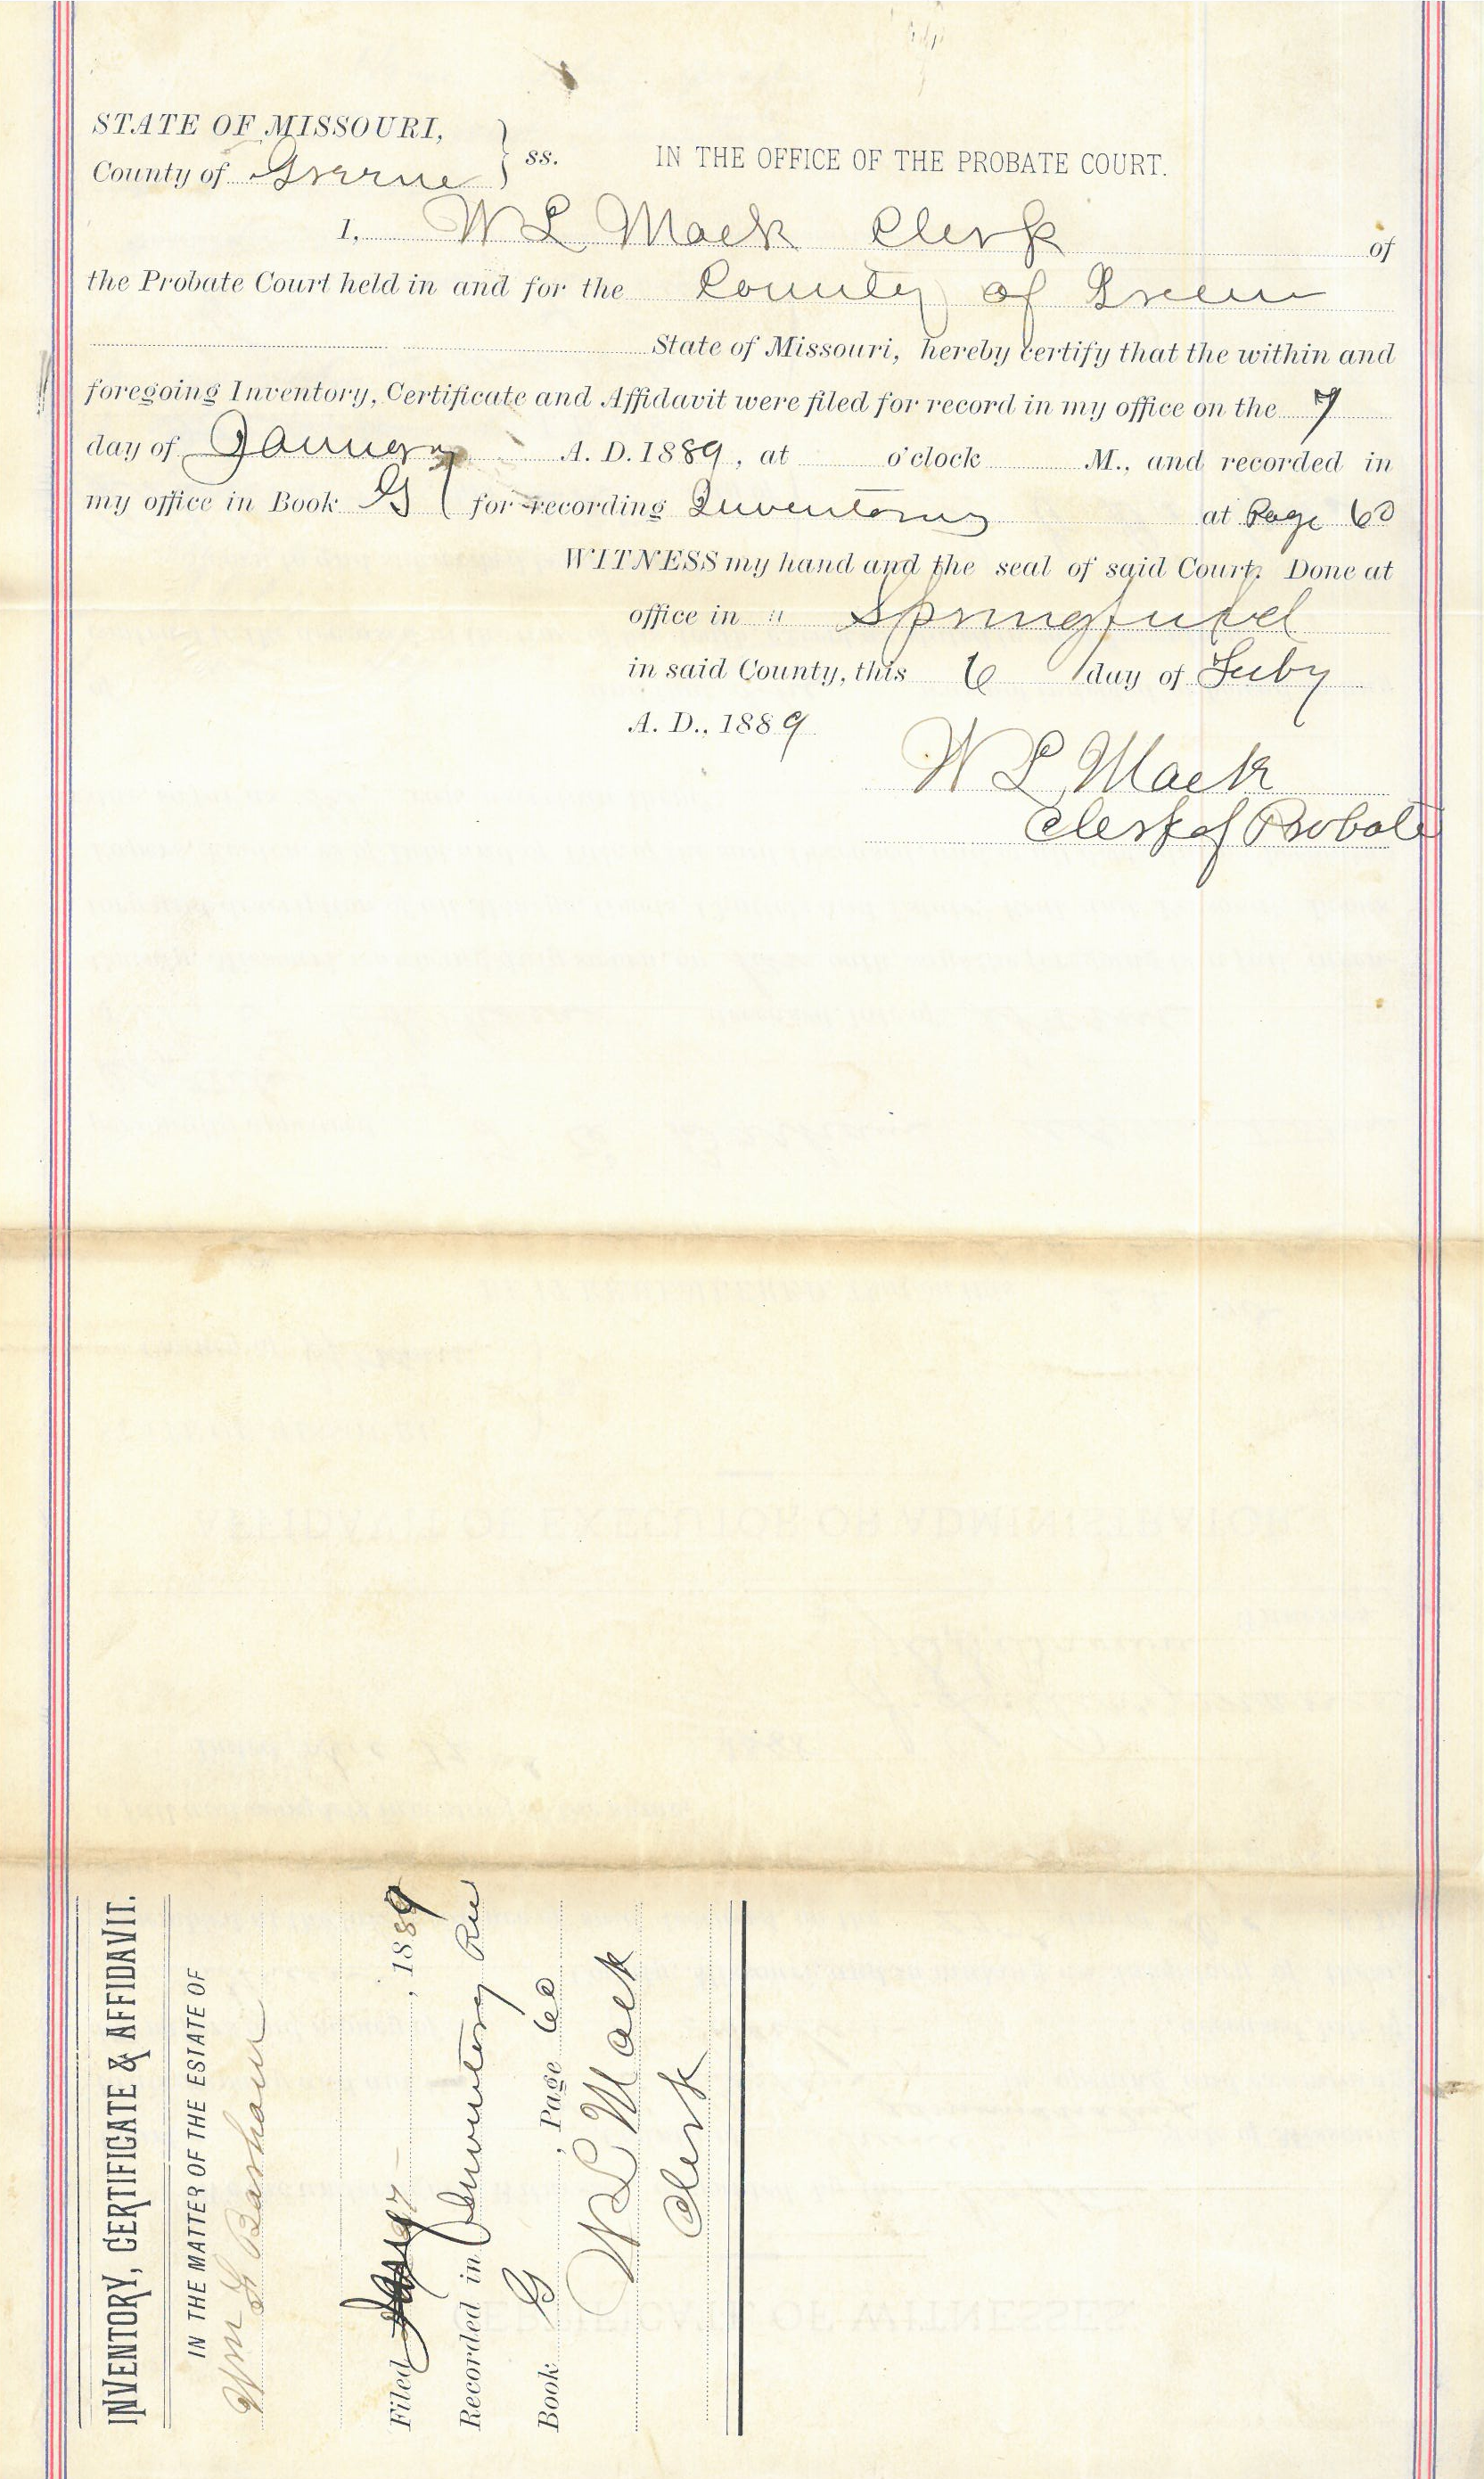 STATE OF MISSOURI,
County of Greene } ss. IN THE OFFICE OF THE PROBATE COURT.
I, W L Mack Clerk of
the Probate Court held in and for the County of Green
State of Missouri, hereby certify that the within and
foregoing Inventory, Certificate and Affidavit were filed for record in my office on the 7
day of January A. D. 1889, at o'clock M., and recorded in
my office in Book G for recording Inventory at Page 60
WITNESS my hand and the seal of said Court. Done at
office in Springfield
in said County, this 6 day of Feby
A. D., 1889
W L Mack
Clerk of Probate
INVENTORY, CERTIFICATE & AFFIDAVIT.
IN THE MATTER OF THE ESTATE OF
Wm Barham
Filed 7, 1889
Recorded in Inventory Rec
Book G, Page 60
W L Mack
Clerk